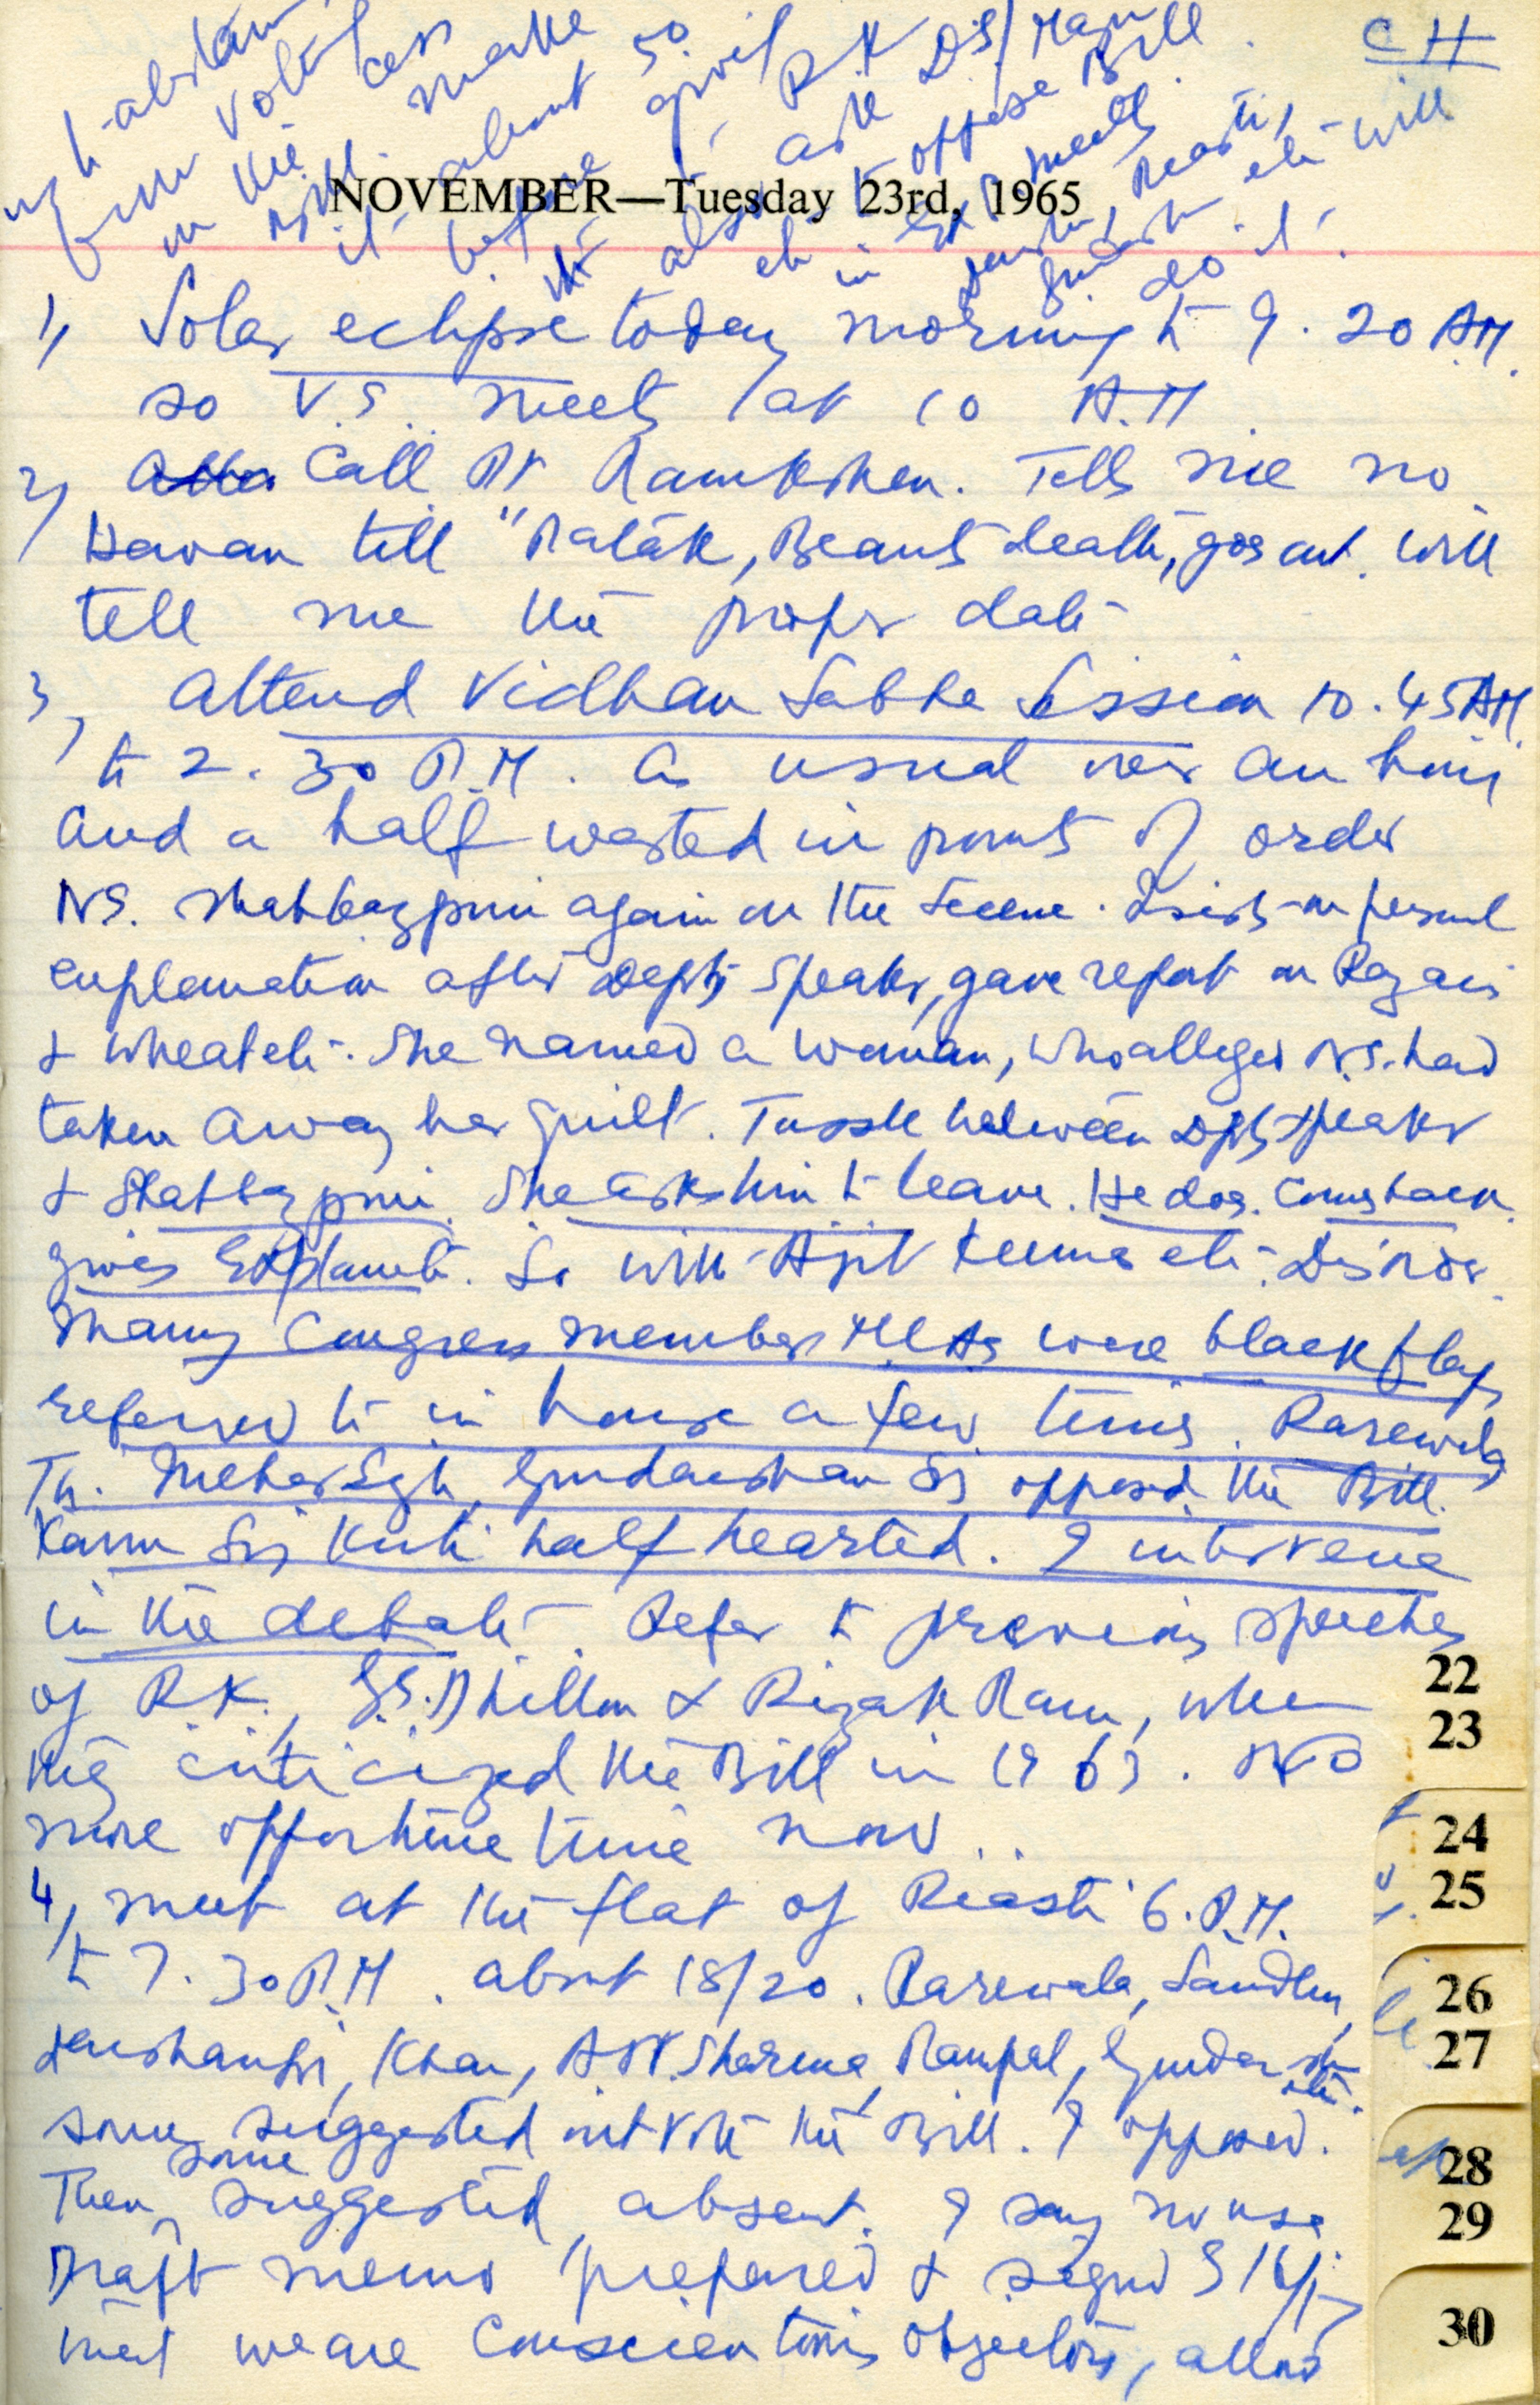 CH
NOVEMBER—Tuesday 23rd, 1965
1) Solar eclipse today morning to 9.20 AM.
so V.S. meets at 10 A.M.
2) Call Pt Ramkishen. Tells me no
Havan till "Patak, Beant's death, goes out. Will
tell me the proper date
3) Attend Vidhan Sabha Session 10.45 AM
to 2.30 P.M. As usual over an hour
and a half wasted in points of order
N.S. Shahbazpuri again on the scene. Insists on personal
explanation after Depty Speaker, gave report on Razais
& wheat etc. She named a woman, who alleges N.S. had
taken away her quilt. Tussle between Dpty Speaker
& Shahbazpuri. She asks him to leave. He does. Comes back
gives Explanati. So with Ajit Kumar etc. Disorder.
Many Congress member MLAs wore black flags
referred to in house a few times. Rarewala
Th. Mehar Sgh, Gurdarshan Sj opposed the Bill.
Karm Sij Kirti half hearted. I intervene
in the debate. Refer to previous speeches
of R.K., G.S. Dhillon & Rizak Ram, when
they criticized the Bill in 1963. No
more opportune time now..
4) meet at the flat of Riasti 6. P.M.
to 7.30 P.M. about 18/20. Rarewala, Sandhu,
Darshan Sij, Khan, A.N. Sharma, Rampal, Gurdarshn
etc.
some suggested not vote the Bill. I opposed.
Then some suggested absent. I say no use
Draft memo prepared & signed S/16/17
that we are Conscientious Objectors, allow
us to abstain
from voting
in the
it about 50
before
also ask DS/Man
etc to oppose Bill
in meeting
etc will
do it.
22
23
24
25
26
27
28
29
30